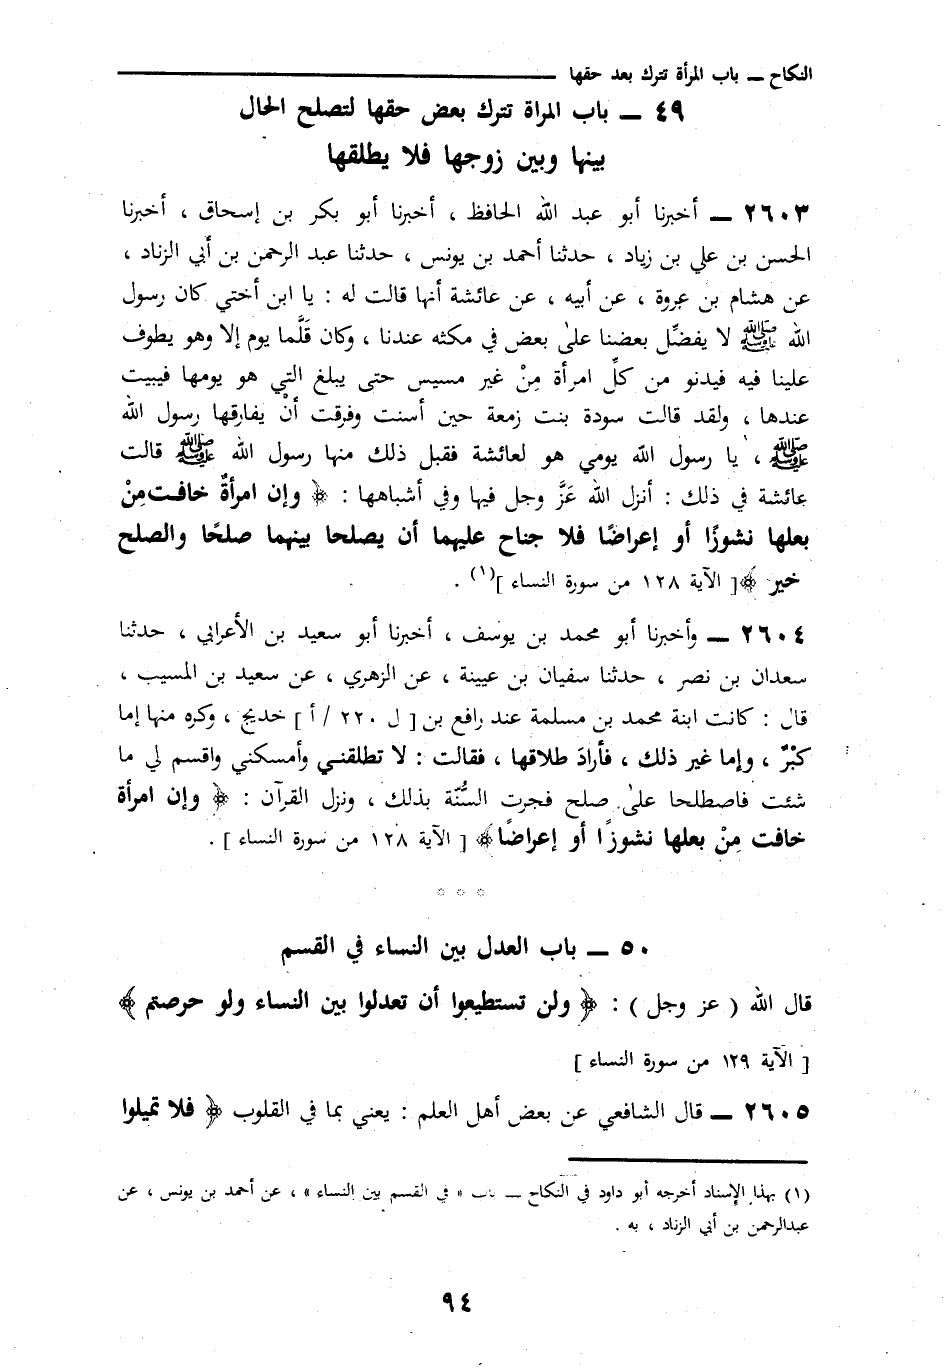 النكاح ــ باب المرأة تترك بعد حقها
٤٩ ــ باب المراة تترك بعض حقها لتصلح الحال
بينها وبين زوجها فلا يطلقها
٢٦٠٣ ــ أخبرنا أبو عبد الله الحافظ ، أخبرنا أبو بكر بن إسحاق ، أخبرنا
الحسن بن علي بن زياد ، حدثنا أحمد بن يونس ، حدثنا عبد الرحمن بن أبي الزناد ،
عن هشام بن عروة ، عن أبيه ، عن عائشة أنها قالت له : يا ابن أختي كان رسول
الله ﷺ لا يفضِّل بعضنا علىٰ بعض في مكثه عندنا ، وكان قَلَّما يوم إلا وهو يطوف
علينا فيه فيدنو من كلِّ امرأة مِنْ غير مسيس حتى يبلغ التي هو يومها فيبيت
عندها ، ولقد قالت سودة بنت زمعة حين أسنت وفرقت أنْ يفارقها رسول الله
ﷺ ، يا رسول الله يومي هو لعائشة فقبل ذلك منها رسول الله ﷺ قالت
عائشة في ذلك : أنزل الله عَزَّ وجل فيها وفي أشباهها : ﴿ وإن امرأةٌ خافت مِنْ
بعلها نشوزًا أو إعراضًا فلا جناح عليهما أن يصلحا بينهما صلحًا والصلح
خير ﴾[ الآية ١٢٨ من سورة النساء ](١) .
٢٦٠٤ ــ وأخبرنا أبو محمد بن يوسف ، أخبرنا أبو سعيد بن الأعرابي ، حدثنا
سعدان بن نصر ، حدثنا سفيان بن عيينة ، عن الزهري ، عن سعيد بن المسيب ،
قال : كانت ابنة محمد بن مسلمة عند رافع بن [ ل ٢٢٠ / أ ] خديج ، وكره منها إما
كبْرٌ ، وإما غير ذلك ، فأرادَ طلاقها ، فقالت : لا تطلقنـي وأمسكني واقسم لي ما
شئت فاصطلحا علىٰ صلح فجرت السُّنّة بذلك ، ونزل القرآن : ﴿ وإن امرأة
خافت مِنْ بعلها نشوزًا أو إعراضًا﴾ [ الآية ١٢٨ من سورة النساء ] .
* * *
٥٠ ــ باب العدل بين النساء في القسم
قال الله ( عز وجل ) : ﴿ ولن تستطيعوا أن تعدلوا بين النساء ولو حرصتم ﴾
[ الآية ١٢٩ من سورة النساء ]
٢٦٠٥ ــ قال الشافعي عن بعض أهل العلم : يعني بما في القلوب ﴿ فلا تميلوا
(١) بهذا الإسناد أخرجه أبو داود في النكاح ــ باب « في القسم بين النساء » ، عن أحمد بن يونس ، عن
عبدالرحمن بن أبي الزناد ، به .
٩٤